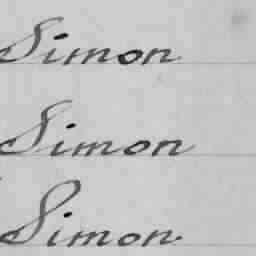 Simon
Simon
Simon.